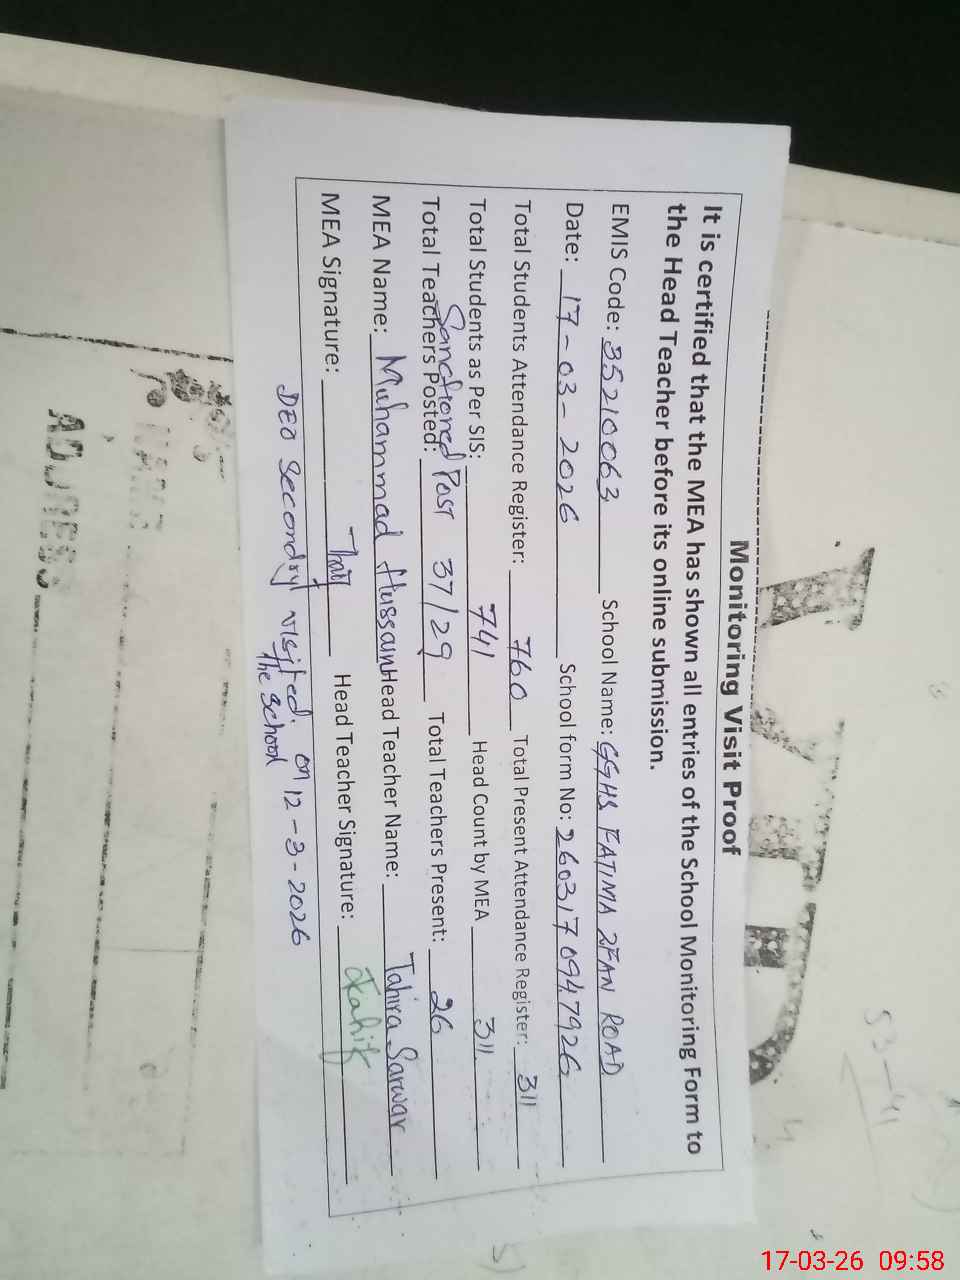 Monitoring Visit Proof
It is certified that the MEA has shown all entries of the School Monitoring Form to
the Head Teacher before its online submission.
EMIS Code: 35210063 School Name: GGHS FATIMA ROAD
Date: 17-03-2026 School form No: 2603170947926
Total Students Attendance Register: 760 Total Present Attendance Register: 311
Total Students as Per SIS: 741 Head Count by MEA 311
Sanctioned Post
Total Teachers Posted: 37/29 Total Teachers Present: 26
MEA Name: Muhammad Hussain Head Teacher Name: Tahira Sarwar
MEA Signature: Head Teacher Signature:
DEO Secondry visited on 12-3-2026
The School
ADJRESS
53-41
17-03-26 09:58